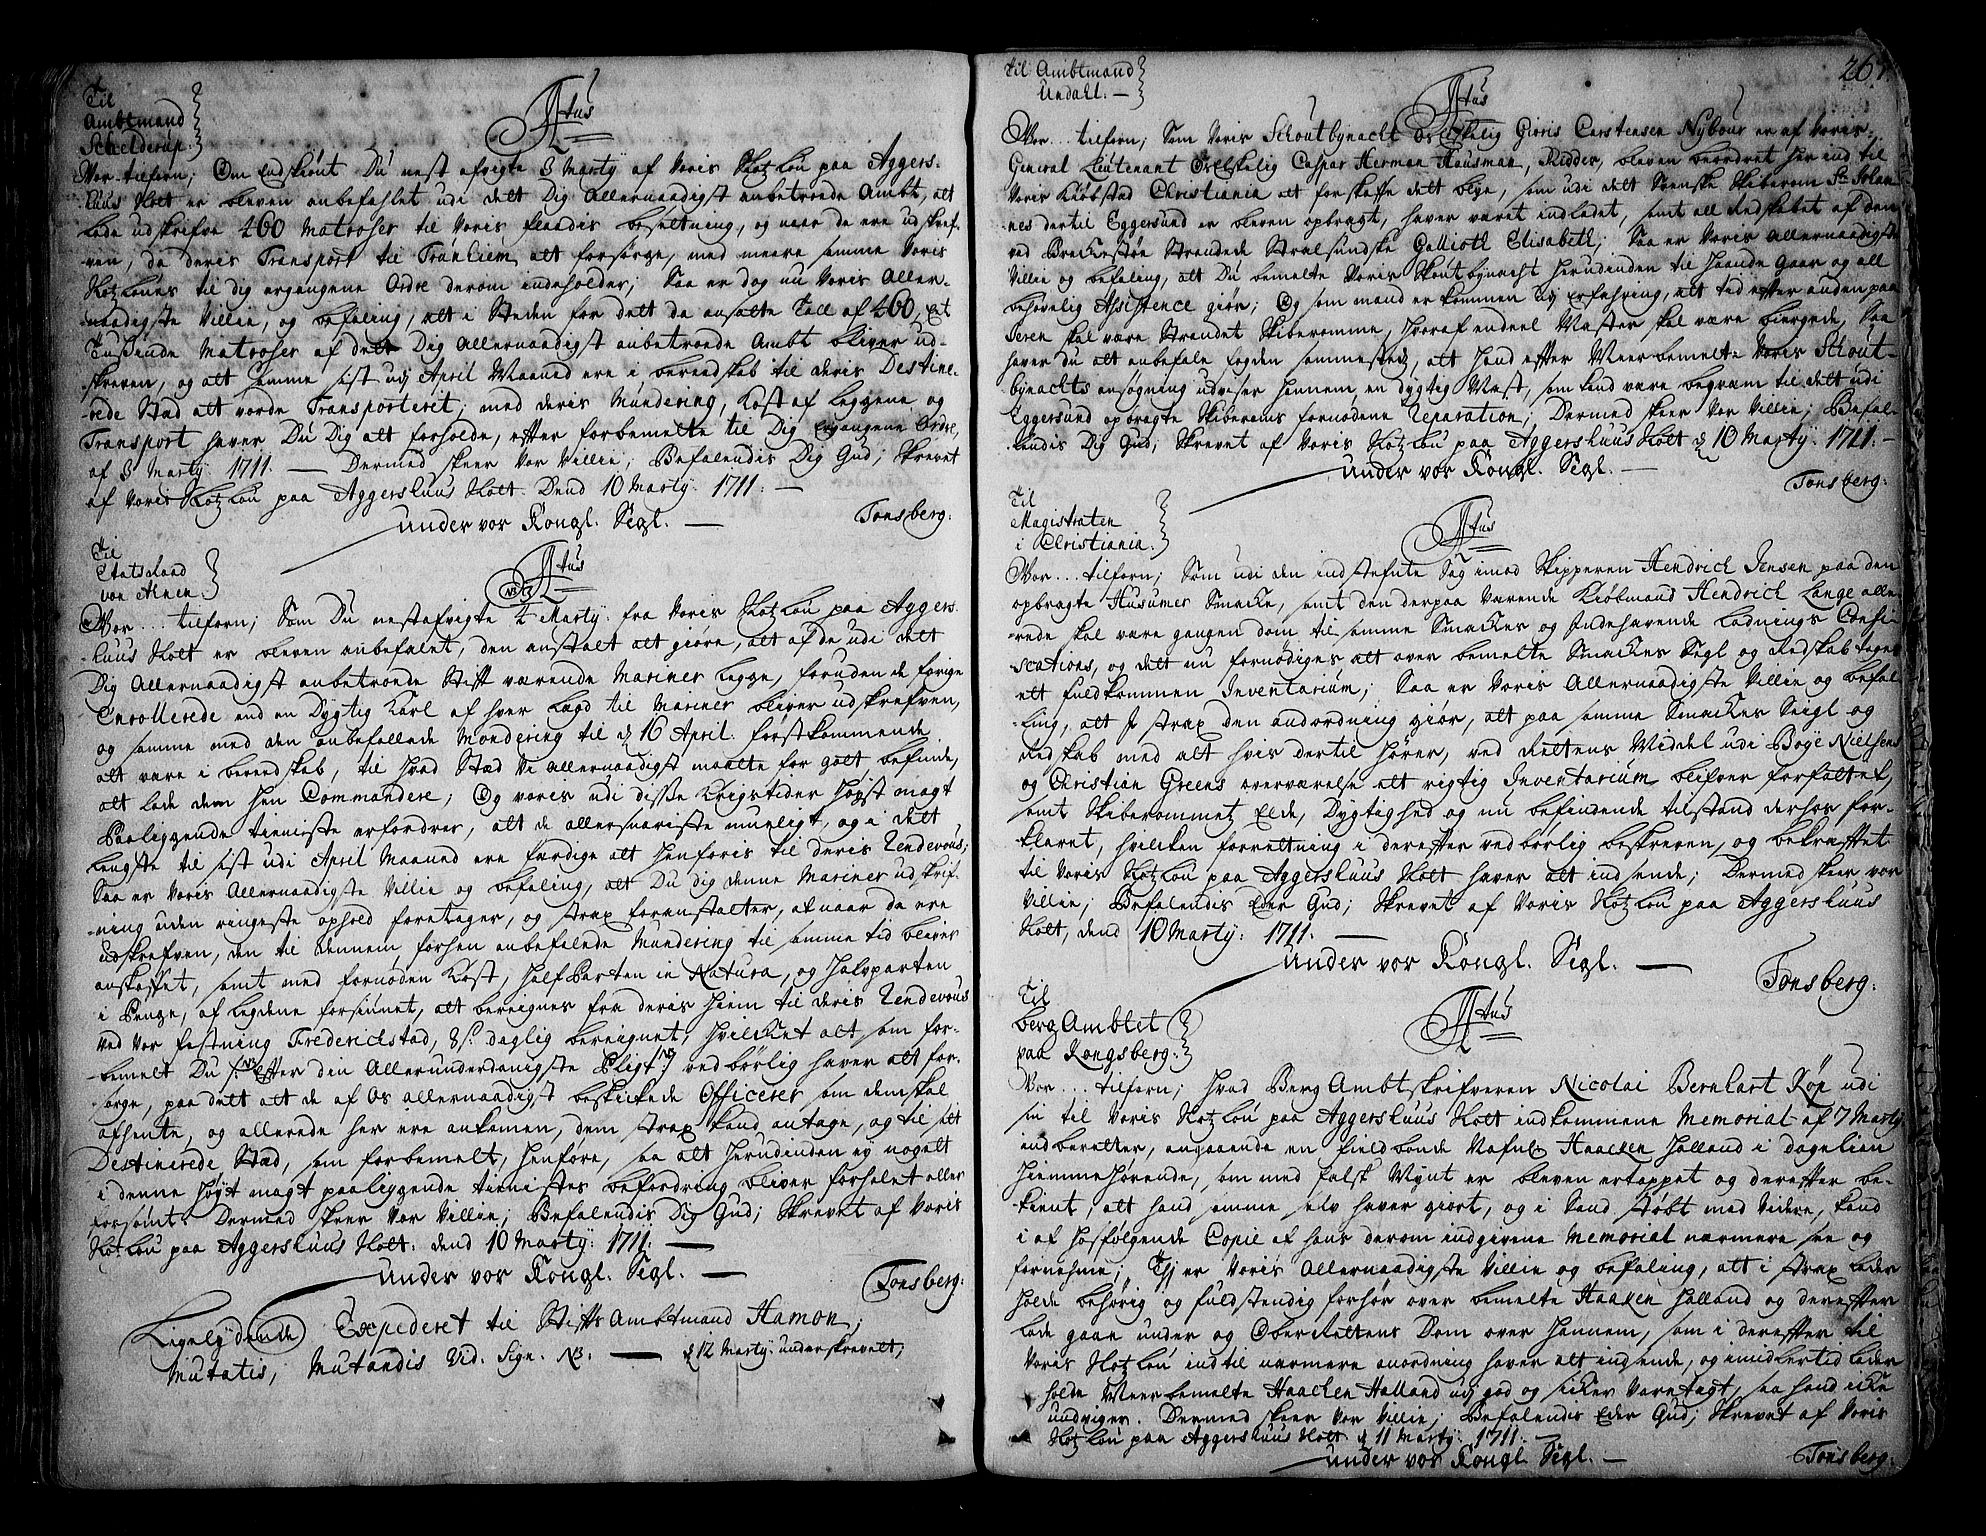 Til
Ambtmand
Schelderup.
Fr. 4tus
Vor.. tilforn; Om endskiønt Du nest afvigte 3 Marty af Voris Slotzlou paa Aggers-
huus Slott er bleven anbefahlet udi dett Dig Allernaadigst anbetroede Ambt, att
lade udskrifve 460 Matroser til Voris flaadis besettning, og naar de ere udskref-
-ven, da deris Transport til Tronhiem att forsørge, med meere samme Voris
Slotzloues til dig ergangene Ordre derom indeholder; Saa er dog nu Voris Aller-
-naadigste Villie, og befaling, att i Steden for dett da ansatte Tall af 460, Et
Tusinde Matroser af dett Dig Allernaadigst anbetroede Ambt bliver ud-
skreven, og att samme sist udj April Maaned ere i bereedskab til deris Destine-
-rede Stæd att vorde Transporteret; med deris Mundering, Kost af leggene og
Transport haver Du Dig att forholde, efter forbemelte til Dig Ergangene Ordre,
af 3 Marty 1711. — Dermed skeer Vor Villie; Befalendis Dig Gud; Skrevet
af Voris Slotzlou paa Aggershuus Slott. Dend 10 Marty. 1711. —
Under vor Kongl. Segl. —
Tonsberg:
Til
Etatsraad
von Ahnen.
4tus
Vor... tilforn; Som Du nestafvigte 4 Marty. fra Voris Slotzlou paa Aggers-
-huus Slott er bleven anbefalet, den anstalt att giøre, att af de udi dett
Dig Allernaadigst anbetroede Stift værende Mariner legge, foruden de forige
Enrollerede end en Dygtig Karl af hver lagd til Mariner bliver udskrefven,
og samme med den anbefallede Mondering til d 16 April. førstkommende
att være i bereedskab, til hvad Stæd Vi Allernaadigst maatte for gott befinde,
att lade dem hen Commandere; Og voris udi disse Krigstider høyst magt
Paaliggende tieniste erfordrer, att de allersnariste mueligt, og i det
lengste til sist udi April Maaned ere færdige att henføris til deris Rendevous;
Saa er Voris Allernaadigste Villie og befaling, att Du dig denne Mariner udskrif-
-ning uden ringeste ophold foretager, og strax foranstalter, at naar de ere
udskrefven, den til dennem forhen anbefalede Mundering til samme tid bliver
anskaffet, samt med fornøden Kost, half Parten in Natura, og halvparten
i Penge, af legdene forsiunet, att bereignes fra deris hiem til deris Rendevous
ved Vor festning Frederichstad, 8 s. daglig bereignet, hvilcket alt, som for-
-bemelt Du /: NB efter din Allerunderdanigste Pligt :/ vedbørlig haver att for-
sørge, paa dett att de af Os allernaadigst beskickede Officerer som dem skal
afhente, og allerede her ere ankomen, dem strax kand antage, og til sit
Destinerede Stæd, som forbemelt, henføre, saa att herudinden ey nogett
i denne høyt magt paaliggende tienistes befordring bliver forhalet eller
forsømt. Dermed skeer Vor Villie; Befalendis Dig Gud; Skrevet af Voris
Slotzlou paa Aggershuus Slott. dend 10 Marty. 1711. —
Under vor Kongl. Segl. —
Tonsberg:
Ligelydende Expederet til StiftsAmbtmand Hamon;
Mutatis, Mutandis Vid. Sign. NB: — d 12 Marty: underskrevett,
267.
Til Ambtmand
Undahl. —
4tus
Vor... tilforn; Som Voris Schoutbynacht Os Elskelig Gioris Carstensen Nybour er af Voris
General Lieutenant Os Elskelig Caspar Herman Hausman, Ridder, bleven beordret her ind til
Voris Kiøbstad Christiania att forskaffe dett berge, som udi dett Svenske Skiberom St Johan-
nes der til Eggersund er bleven opbragt, haver været indladet, samt all Redskabet af den
ved Brechestøe Strandede Stralsundske Galliott Elisabeth; Saa er Voris Allernaadigste
Villie og befaling, att Du bemelte Voris Skoutbynacht herudinden til haande gaar og all
behøvelig Assistence giør; Og som mand er kommen udj Erfahring, att ved efter anden paa
Jeren skal være Strandet Skiberomme, hvoraf endeel Master skal være biergede, Saa
haver Du att anbefale fogden sammesteds, att hand efter Meerbemelte Voris Schout-
bynachts ansøgning udviser hannem en dygtig Mast, som kand være beqvem til dett udi
Eggersund opbragte Skiberoms fornødene Reparation; Dermed skeer Vor Villie; Befal-
-lendis Dig Gud; Skrevet af Voris Slotzlou paa Aggershuus Slott d 10 Marty. 1711. —
Under vor Kongl. Segl. —
Tonsberg:
Til
Magistraten
i Christiania.
4tus
Vor... tilforn; Som udi den indstefnte Sag imod Skipperen Hendrich Jensen paa den
opbragte Husumer Smacke, samt den derpaa værende Kiøbmand Hendrich Lange alle-
-rede skal være gangen dom til samme Smackes og Indehavende ladnings Confi-
scations, og dett nu fornødiges att over bemelte Smackes Segl og Redskab tages
ett fuldkommen Inventarium; Saa er Voris Allernaadigste Villie og befal-
-ling, att I strax den andordning giør, att paa samme Smackes Seigl og
Redskab med alt hvis dertil hører, ved Rettens Middel udi Boye Nielsens
og Christian Greens overværelse ett rigtig Inventarium blifver forfattet,
samt Skiberommetz Elde, Dygtighed og nu befindende tilstand derhos for-
klaret, hvilcken forrettning i derefter vedbørlig beskreven, og bekræfftet
til Voris Slotzlou paa Aggershuus Slott haver att indsende; Dermed skeer vor
Villie; Befalendis Eder Gud; Skrevet af Voris Slotzlou paa Aggershuus
Slott, dend 10 Marty: 1711. —
Under vor Kongl. Segl. —
Tonsberg:
Til
Berg Ambtet
paa Kongsberg.
4tus
Vor... tilforn; hvad Berg Ambtskrifveren Nicolai Bernhart Røy udi
sin til Voris Slotzlou paa Aggershuus Slott indkommene Memorial af 7 Marty
indberetter, angaaende en fieldbonde Nafnl Haacken Holland i dagelien
hiemmehørende, som med falsk Mynt er bleven ertappet og derefter be-
-kient, att hand samme selv haver giort, og i Sand støbt med Videre, kand
i af hosfølgende Copie af hans derom indgivene Memorial nærmere see og
fornehme; Thj er Voris Allernaadigste Villie og befaling, att i strax lader
holde behørig og fuldstendig forhør over bemelte Haaken Holland og derefter
lade gaae under og Oberrettens Dom over hannem, som i derefter til
Voris Slotzlou indtil nærmere anordning haver att indsende, og imidlertid lader
holde Meerbemelte Haacken Holland udj god og sicker Varetægt, saa hand icke
undviger. Dermed skeer Vor Villie; Befalendis Eder Gud; Skrevet af Voris
Slotzlou paa Aggershuus Slott d 11 Marty. 1711. —
Under vor Kongl. Segl. —
Tonsberg: